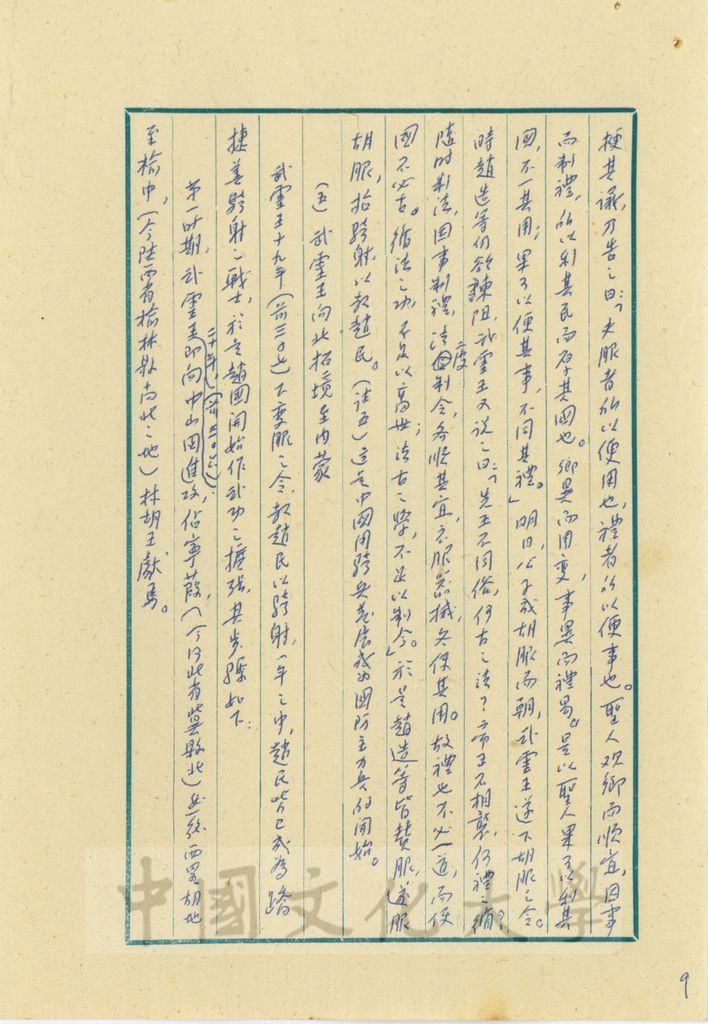 梗其議，乃告之曰：「夫服者所以便用也，禮者所以便事也。聖人观鄉而順宜，因事
而制禮，所以利其民而厚其國也。鄉異而用變，事異而禮易。是以聖人果可以利其
國，不一其用；果可以便其事，不同其禮。」明日，公子成胡服而朝，武靈王遂下胡服之令。
時趙造等仍欲諫阻，武靈王又說之曰：「先王不同俗，何古之法？帝王不相襲，何禮之循？
隨時制法，因事制禮，法度制令，各順其宜，衣服器械，各便其用。故禮也不必一道，而便
國不必古。循法之功，不足以高世；法古之學，不足以制今。」於是趙造等皆贊服，遂服
胡服，招騎射，以教趙民。（註五）這是中國用騎兵發展成為國防主力兵的開始。
（五）武靈王向北拓境至內蒙
武靈王十九年（前三〇七）下變服之令，教趙民以騎射，一年之中，趙民皆已成為蹻
捷善騎射之戰士，於是趙國開始作武功之擴張，其步驟如下：
第一时期，武靈王二十年，（前三〇六）即向中山國進攻，佔寧葭，（今河北省冀縣北）並於西畧胡地
至榆中，（今陝西省榆林縣東北之地）林胡王獻馬。
9
中國文化大學